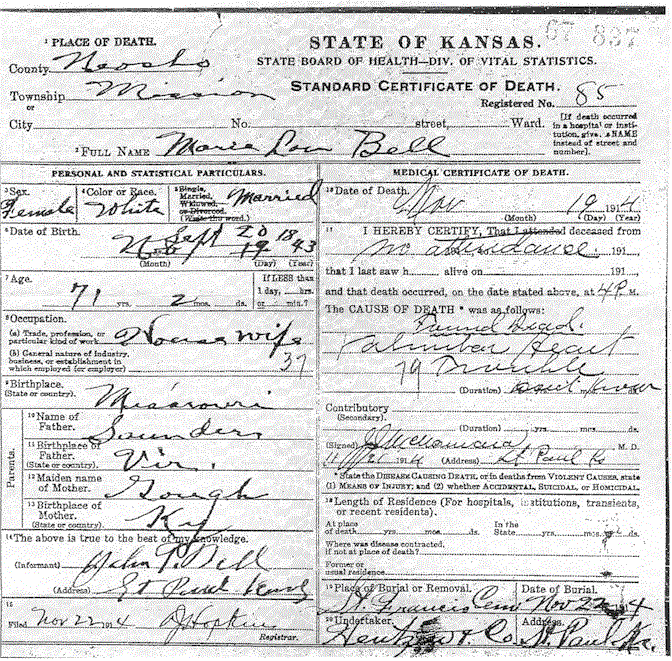 67 837
¹ PLACE OF DEATH.
STATE OF KANSAS.
County Neosho
STATE BOARD OF HEALTH—DIV. OF VITAL STATISTICS.
Township Mission
STANDARD CERTIFICATE OF DEATH.
or
Registered No. 85
City No. street, Ward.
[If death occurred in a hospital or institution, give its NAME instead of street and number].
² FULL NAME Marie Lou Bell
PERSONAL AND STATISTICAL PARTICULARS.
³ Sex. Female
⁴ Color or Race. White
⁵ Single, Married, Widowed, or Divorced. (Write the word.) Married
⁶ Date of Birth. Nov Sept 20 18
19 43
(Month) (Day) (Year)
⁷ Age. 71 yrs. 2 mos. ds.
If LESS than 1 day, hrs. or min.?
⁸ Occupation.
(a) Trade, profession, or particular kind of work House wife
(b) General nature of industry, business, or establishment in which employed (or employer) 37
⁹ Birthplace. (State or country). Missouri
Parents.
¹⁰ Name of Father. Saunders
¹¹ Birthplace of Father. (State or country). Vir.
¹² Maiden name of Mother. Gough
¹³ Birthplace of Mother. (State or country). Ky
¹⁴ The above is true to the best of my knowledge.
(Informant) John P. Bell
(Address) St Paul Kans
¹⁵
Filed Nov 22 1914 Hopkins
Registrar.
MEDICAL CERTIFICATE OF DEATH.
¹⁶ Date of Death. Nov 19 1914
(Month) (Day) (Year)
¹⁷ I HEREBY CERTIFY, That I attended deceased from
no attendance 191 ,
that I last saw h alive on 191 ,
and that death occurred, on the date stated above, at 4 P. M.
The CAUSE OF DEATH * was as follows:
Found Dead.
Valvular Heart
79 Trouble
(Duration)
Contributory
(Secondary).
(Duration) yrs. mos. ds.
(Signed) M. D.
11/21 1914 (Address) St Paul Ks
* State the DISEASE CAUSING DEATH, or in deaths from VIOLENT CAUSES, state (1) MEANS OF INJURY; and (2) whether ACCIDENTAL, SUICIDAL, or HOMICIDAL.
¹⁸ Length of Residence (For hospitals, institutions, transients, or recent residents).
At place of death yrs. mos. ds. In the State yrs. mos. ds.
Where was disease contracted, if not at place of death?
Former or usual residence
¹⁹ Place of Burial or Removal. St. Francis Cem
Date of Burial. Nov 22 1914
²⁰ Undertaker. Co.
Address. St. Paul Ks.